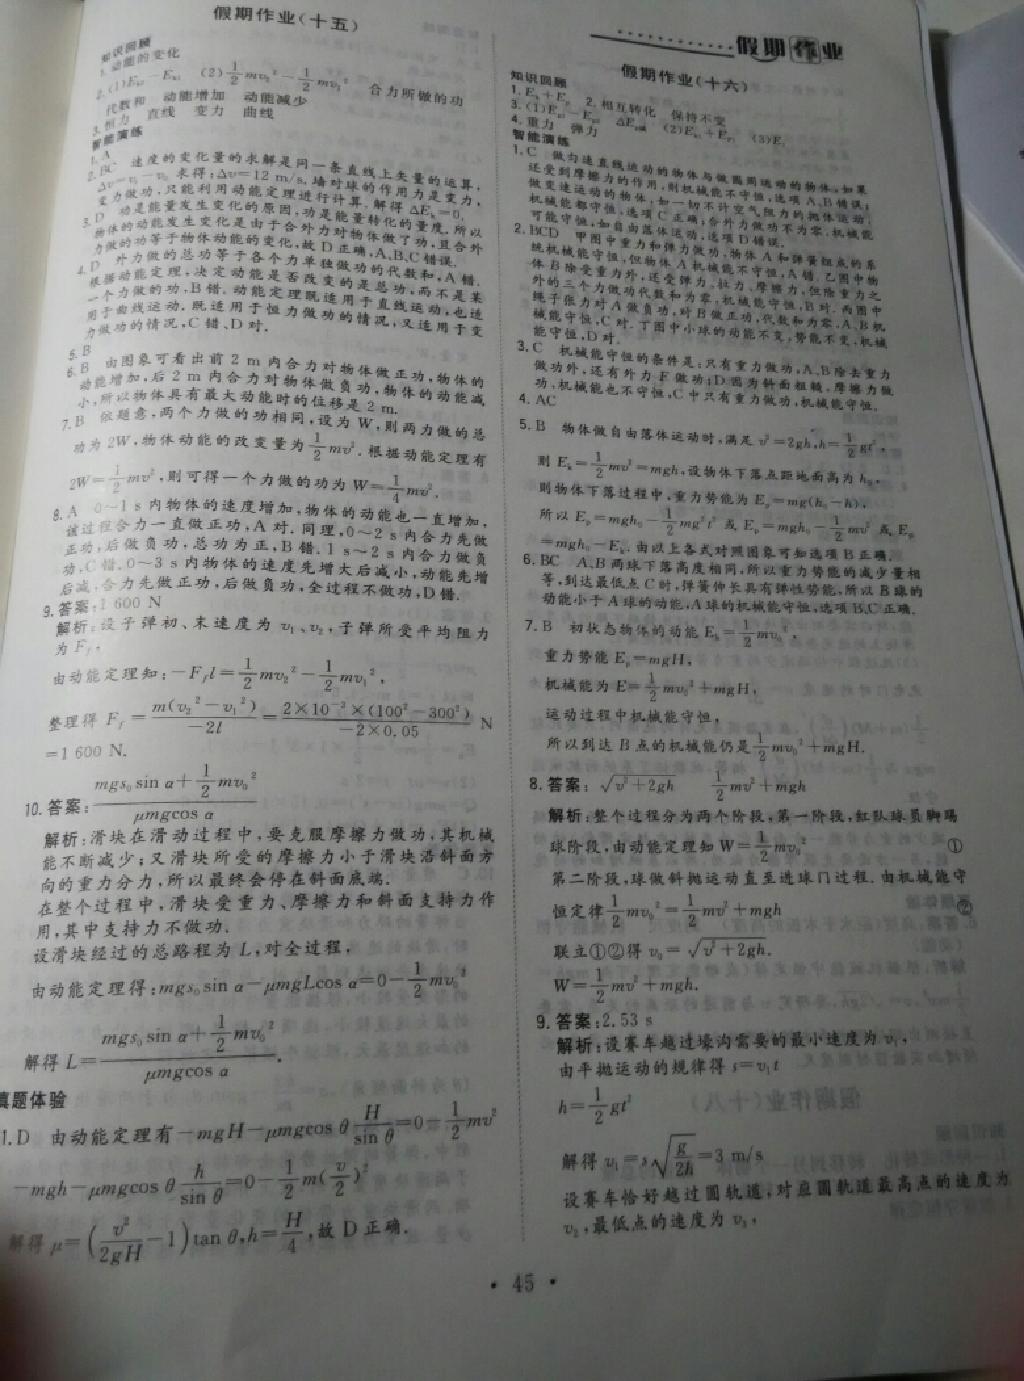 假期作业(十五)
知识回顾
1.动能的变化
2.(1)Eₖ₂-Eₖ₁ (2)1/2mv₂²-1/2mv₁² 合力所做的功
代数和 动能增加 动能减少
3.恒力 直线 变力 曲线
智能演练
1.A
2.BC 速度的变化量的求解是同一条直线上矢量的运算,
Δv=v₁-v₀ 求得:Δv=12 m/s,墙对球的作用力是变力,
变力做功,只能利用动能定理进行计算.解得ΔEₖ=0.
3.D 功是能量发生变化的原因,功是能量转化的量度,所以
物体的动能发生变化是由于合外力对物体做了功,且合外
力做的功等于物体动能的变化,故D正确,A、B、C错误.
4.D 外力做的总功等于各个力单独做功的代数和,A错.
根据动能定理,决定动能是否改变的是总功,而不是某
一个力做的功,B错.动能定理既适用于直线运动,也适
用于曲线运动,既适用于恒力做功的情况,又适用于变
力做功的情况,C错、D对.
5.B
6.B 由图象可看出前2 m内合力对物体做正功,物体的
动能增加,后2 m内合力对物体做负功,物体的动能减
小,所以物体具有最大动能时的位移是2 m.
7.B 依题意,两个力做的功相同,设为W,则两力做的总
功为2W,物体动能的改变量为1/2mv².根据动能定理有
2W=1/2mv²,则可得一个力做的功为W=1/4mv².
8.A 0~1 s内物体的速度增加,物体的动能也一直增加,
该过程合力一直做正功,A对.同理,0~2 s内合力先做
正功,后做负功,总功为正,B错.1 s~2 s内合力做负
功,C错.0~3 s内物体的速度先增大后减小,动能先增
后减,合力先做正功,后做负功,全过程不做功,D错.
9.答案:1 600 N
解析:设子弹初、末速度为v₁、v₂,子弹所受平均阻力
为F_f,
由动能定理知:-F_f l=1/2mv₂²-1/2mv₁²,
整理得F_f=m(v₂²-v₁²)/(-2l)=2×10⁻²×(100²-300²)/(-2×0.05) N
=1 600 N.
10.答案:(mgs₀sin α+1/2mv₀²)/(μmgcos α)
解析:滑块在滑动过程中,要克服摩擦力做功,其机械
能不断减少;又滑块所受的摩擦力小于滑块沿斜面方
向的重力分力,所以最终会停在斜面底端.
在整个过程中,滑块受重力、摩擦力和斜面支持力作
用,其中支持力不做功.
设滑块经过的总路程为L,对全过程,
由动能定理得:mgs₀sin α-μmgLcos α=0-1/2mv₀²
解得L=(mgs₀sin α+1/2mv₀²)/(μmgcos α).
真题体验
1.D 由动能定理有-mgH-μmgcos θ H/sin θ=0-1/2mv²
-mgh-μmgcos θ h/sin θ=0-1/2m(v/2)²
解得μ=(v²/2gH-1)tan θ,h=H/4,故D正确.
假期作业
假期作业(十六)
知识回顾
1.Eₖ+Eₚ 2.相互转化 保持不变
3.(1)Eₚ₁-Eₚ₂ (2)Eₖ₁+Eₚ₁ (3)E₁
4.重力 弹力
智能演练
1.C 做匀速直线运动的物体与做圆周运动的物体,如果
还受到摩擦力的作用,则机械能不守恒,选项A、B错误;
做变速运动的物体,如一切不计空气阻力的抛体运动,
机械能都守恒,选项C正确;合外力做功不为零,机械能
可能守恒,如自由落体运动,选项D错误.
2.BCD 甲图中重力和弹力做功,物体A和弹簧组成的系
统机械能守恒,但物体A机械能不守恒,A错.乙图中物
体B除受重力外,还受弹力、拉力、摩擦力,但除重力之
外的三个力做功代数和为零,机械能守恒,B对.丙图中
绳子张力对A做负功,对B做正功,代数和为零,A、B机
械能守恒,C对.丁图中小球的动能不变,势能不变,机械
能守恒,D对.
3.C 机械能守恒的条件是:只有重力做功,A、B除去重力
做功外,还有外力F做功;D因为斜面粗糙,摩擦力做
功,机械能也不守恒,C中只有重力做功,机械能守恒.
4.AC
5.B 物体做自由落体运动时,满足v²=2gh,h=1/2gt²,
则Eₖ=1/2mv²=mgh,设物体下落点距地面高为h₀,
则物体下落过程中,重力势能为Eₚ=mg(h₀-h),
所以Eₚ=mgh₀-1/2mg²t² 或Eₚ=mgh₀-1/2mv² 或Eₚ
=mgh₀-Eₖ.由以上各式对照图象可知选项B正确.
6.BC A、B两球下落高度相同,所以重力势能的减少量相
等,到达最低点C时,弹簧伸长具有弹性势能,所以B球的
动能小于A球的动能,A球的机械能守恒,选项B、C正确.
7.B 初状态物体的动能Eₖ=1/2mv₀²,
重力势能Eₚ=mgH,
机械能为E=1/2mv₀²+mgH,
运动过程中机械能守恒,
所以到达B点的机械能仍是1/2mv₀²+mgH.
8.答案:√(v²+2gh) 1/2mv²+mgh
解析:整个过程分为两个阶段,第一阶段,红队球员脚踢
球阶段,由动能定理知W=1/2mv₀² ①
第二阶段,球做斜抛运动直至进球门过程.由机械能守
恒定律1/2mv₀²=1/2mv²+mgh ②
联立①②得v₀=√(v²+2gh).
W=1/2mv²+mgh.
9.答案:2.53 s
解析:设赛车越过壕沟需要的最小速度为v₁,
由平抛运动的规律得s=v₁t
h=1/2gt²
解得v₁=s√(g/2h)=3 m/s
设赛车恰好越过圆轨道,对应圆轨道最高点的速度为
v₂,最低点的速度为v₃,
• 45 •